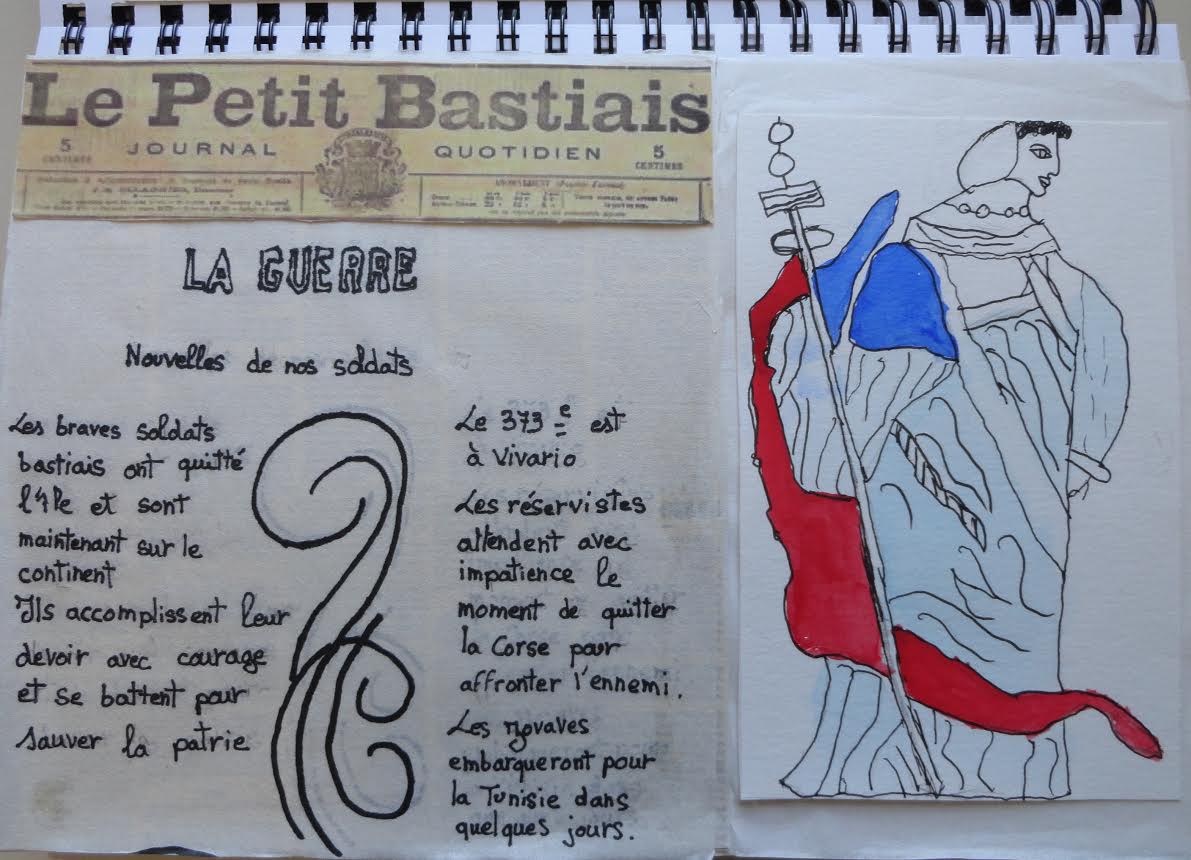 Le Petit Bastiais
5 CENTIMES JOURNAL QUOTIDIEN 5 CENTIMES
LA GUERRE
Nouvelles de nos soldats
Les braves soldats
bastiais ont quitté
l'Ile et sont
maintenant sur le
continent
Ils accomplissent leur
devoir avec courage
et se battent pour
sauver la patrie
Le 373e est
à Vivario
Les réservistes
attendent avec
impatience le
moment de quitter
la Corse pour
affronter l'ennemi.
Les zouaves
embarqueront pour
la Tunisie dans
quelques jours.